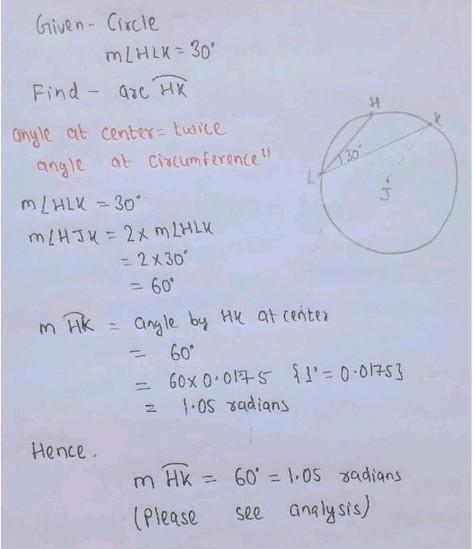 Given- Circle
m∠HLK = 30°
Find - arc HK
angle at center= twice
angle at circumference"
m∠HLK = 30°
m∠HJK = 2x m∠HLK
= 2x30°
= 60°
m HK = angle by HK at center
= 60°
= 60x0.0175 {1° = 0.0175}
= 1.05 radians
Hence.
m HK = 60° = 1.05 radians
(Please see analysis)
H
K
L
30°
J